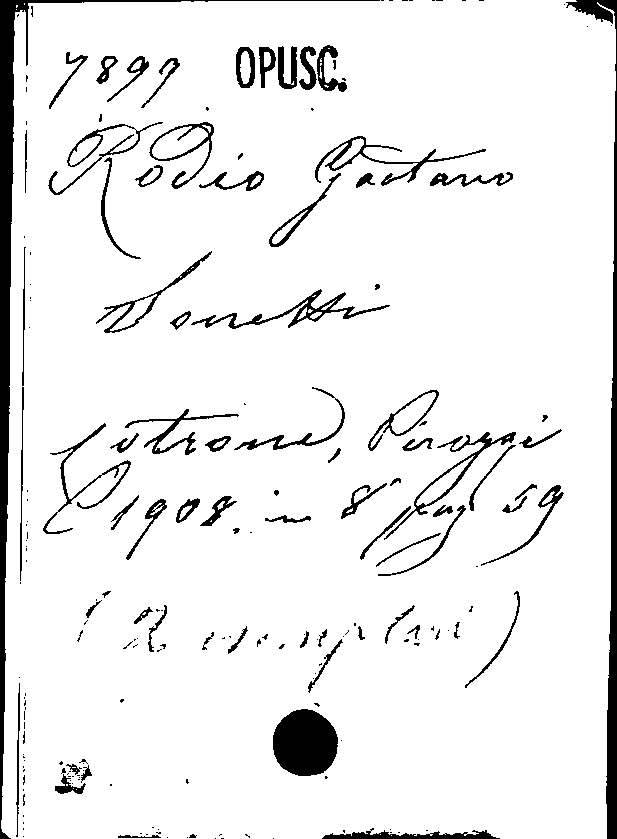 7899 OPUSC.
Rodio Gaetano
Sonetti
Cotrone, Pirozzi
1908. in 8° pag 59
(2 esemplari)